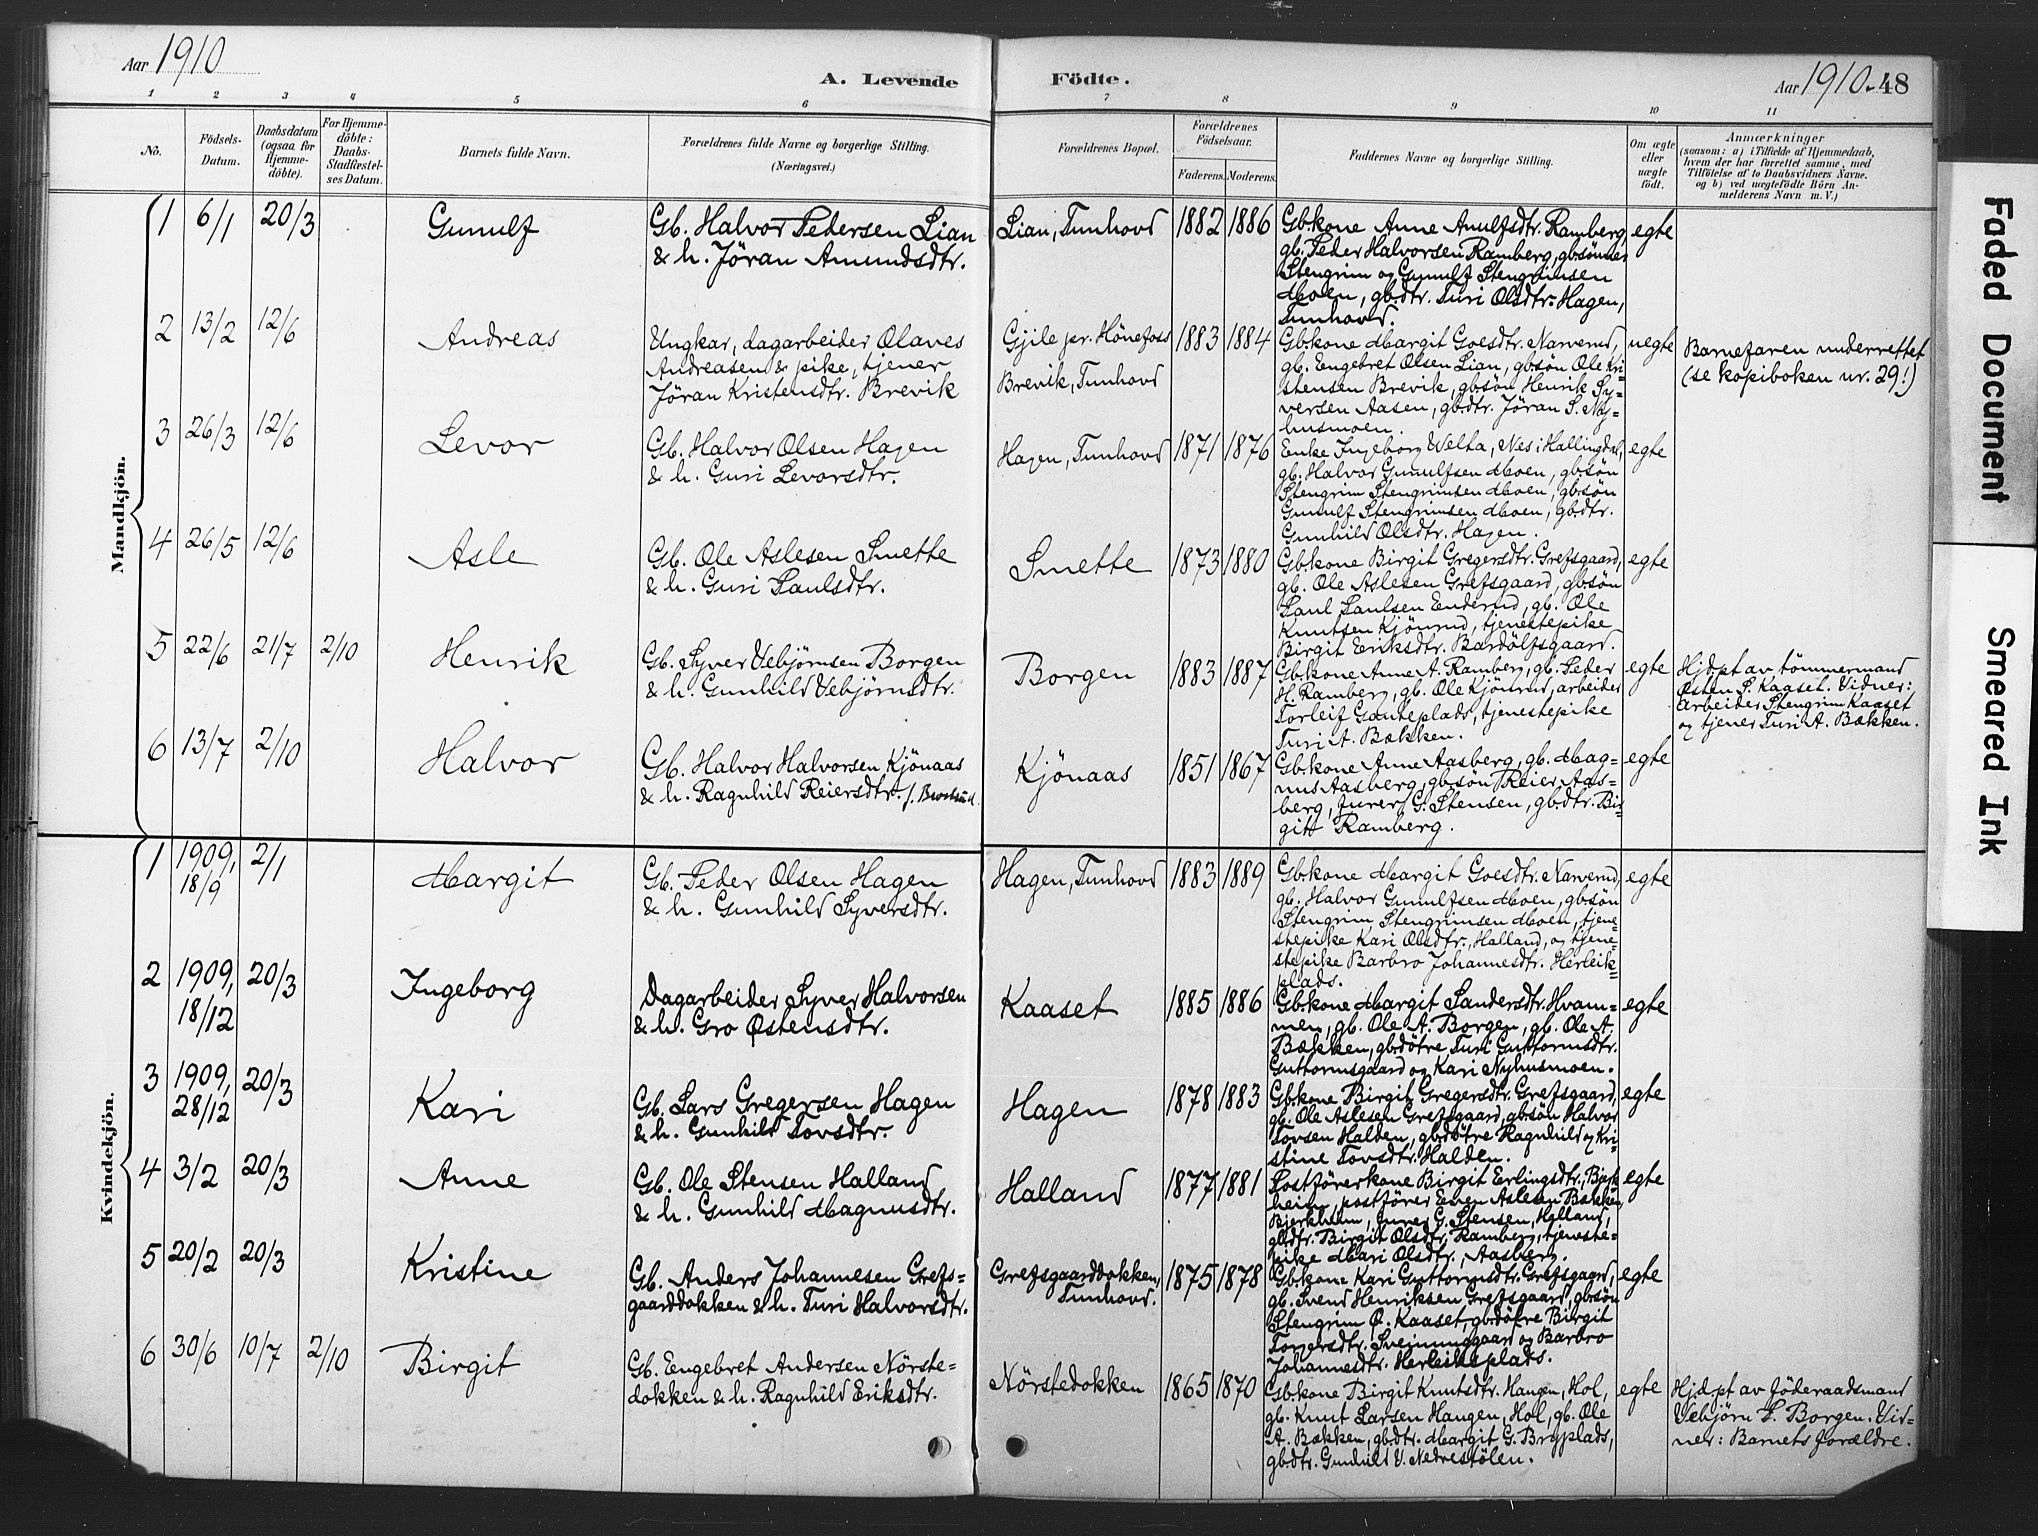 Aar 1910
A. Levende
Födte.
Aar 1910. 48
1 2 3 4 5 6 7 8 9 10 11
No.
Födsels-
Datum.
Daabsdatum
(ogsaa for
Hjemme-
döbte).
For Hjemme-
döbte:
Daabs-
Stadfæstel-
ses Datum.
Barnets fulde Navn.
Forældrenes fulde Navne og borgerlige Stilling.
(Næringsvei.)
Forældrenes Bopæl.
Forældrenes
Födselsaar.
Faderens. Moderens.
Faddernes Navne og borgerlige Stilling.
Om ægte
eller
uægte
födt.
Anmærkninger
(saasom: a) i Tilfælde af Hjemmedaab,
hvem der har forrettet samme, med
Tilföielse af to Daabsvidners Navne.
og b) ved uægtefödte Börn An-
melderens Navn m. V.)
Mandkjön.
1 6/1 20/3 Gunulf
Gb. Halvor Pedersen Lian
& h. Jöran Amundsdtr.
Lian, Tunhovd 1882 1886
Gb.kone Anne Anulfsdtr. Ramberg,
gb. Peder Halvorsen Ramberg, gb.sönner
Stengrim og Gunulf Stengrimsen
Moen, gb.dtr. Turi Olsdtr. Hagen,
Tunhovd.
egte
2 13/2 12/6 Andreas
Ungkar, dagarbeider Olaves
Andreasen & pike, tjener
Jöran Kristensdtr. Brevik
Gjile pr. Hönefoss
Brevik, Tunhovd
1883 1884
Gb.kone Margit Goesdtr. Narverud,
gb. Engebret Olsen Lian, gb.sön Ole Kri-
stensen Brevik, gb.sön Henrik Sy-
versen Aasen, gb.dtr. Jöran S. Ny-
husmoen.
uegte
Barnefaren underrettet
(se kopiboken nr. 29!)
3 26/3 12/6 Levor
Gb. Halvor Olsen Hagen
& h. Guri Levorsdtr.
Hagen, Tunhovd 1871 1876
Enke Ingeborg Velta, Nes i Hallingdal,
gb. Halvor Gunulfsen Moen, gb.sön
Stengrim Stengrimsen Moen, gb.sön
Gunulf Stengrimsen Moen, gb.dtr.
Gunhild Olsdtr. Hagen.
egte
4 26/5 12/6 Asle
Gb. Ole Aslesen Smette
& h. Guri Paulsdtr.
Smette 1873 1880
Gb.kone Birgit Gregersdtr. Grefsgaard,
gb. Ole Aslesen Grefsgaard, gb.sön
Paul Paulsen Enderud, gb. Ole
Knutsen Kjönrud, tjenestepike
Birgit Eriksdtr. Bardölfsgaard.
egte
5 22/6 21/7 2/10 Henrik
Gb. Syver Vebjörnsen Borgen
& h. Gunhild Vebjörnsdtr.
Borgen 1883 1887
Gb.kone Anne A. Ramberg, gb. Peder
H. Ramberg, gb. Ole Kjönrud, arbeider
Torleif Gauteplads, tjenestepike
Turi A. Bækken.
egte
Hjd.pt av tömmermand
Østen P. Kaaset. Vidner:
Arbeider Stengrim Kaaset
og tjener Turi A. Bækken.
6 13/7 2/10 Halvor
Gb. Halvor Halvorsen Kjönaas
& h. Ragnhild Reiersdtr.
Kjönaas 1851 1867
Gb.kone Anne Aasberg, gb. Mag-
nus Aasberg, gb.sön Reier Aas-
berg, Jurer G. Stensen, gb.dtr. Bir-
gitt Ramberg.
egte
Kvindekjön.
1 1909, 18/9 2/1 Margit
Gb. Peder Olsen Hagen
& h. Gunhild Syversdtr.
Hagen, Tunhovd 1883 1889
Gb.kone Margit Goesdtr. Narverud,
gb. Halvor Gunulfsen Moen, gb.sön
Stengrim Stengrimsen Moen, tjene-
stepike Kari Olsdtr., Halland, og tjene-
stepike Barbro Johannesdtr. Herleik-
plads.
egte
2 1909, 18/12 20/3 Ingeborg
Dagarbeider Syver Halvorsen
& h. Gro Østensdtr.
Kaaset 1885 1886
Gb.kone Margit Sandersdtr. Hvam-
men, gb. Ole A. Borgen, gb. Ole A.
Bækken, gb.døtre Turi Guttormsdtr.
Guttormsgaard og Kari Nyhusmoen.
egte
3 1909, 28/12 20/3 Kari
Gb. Lars Gregersen Hagen
& h. Gunhild Tovsdtr.
Hagen 1878 1883
Gb.kone Birgit Gregersdtr. Grefsgaard,
gb. Ole Aslesen Grefsgaard, gb.sön Halvor
Tovsen Halden, gb.døtre Ragnhild og Kri-
stine Tovsdtr. Halden.
egte
4 3/2 20/3 Anne
Gb. Ole Stensen Halland
& h. Gunhild Magnusdtr.
Halland 1877 1881
Postförerkone Birgit Erlingsdtr., Bjerk-
heim, postförer Even Aslesen Bækken,
Bjerkheim, Jurer G. Stensen, Halland,
gb.dtr. Birgit Olsdtr. Ramberg, tjeneste-
pike Mari Olsdtr., Aasberg.
egte
5 20/2 20/3 Kristine
Gb. Anders Johannesen Grefs-
gaarddokken & h. Turi Halvorsdtr.
Grefsgaarddokken,
Tunhovd.
1875 1878
Gb.kone Kari Guttormsdtr. Grefsgaard,
gb. Svend Henriksen Grefsgaard, gb.sön
Stengrim Ø. Kaaset, gb.døtre Birgit
Torgersdtr. Sveinunggaard og Barbro
Johannesdtr. Herleiksplads.
egte
6 30/6 10/7 2/10 Birgit
Gb. Engebret Andersen Nörste-
dokken & h. Ragnhild Eriksdtr.
Nörstedokken 1865 1870
Gb.kone Birgit Knutsdtr. Haugen, Hol,
gb. Knut Larsen Haugen, Hol, gb. Ole
A. Bækken, gb.dtr. Margit G. Bryplads,
gb.dtr. Gunhild V. Nedrestölen.
egte
Hjd.pt av föderaadsmand
Vebjörn S. Borgen. Vid-
ner: Barnets forældre.
Faded Document
Smeared Ink